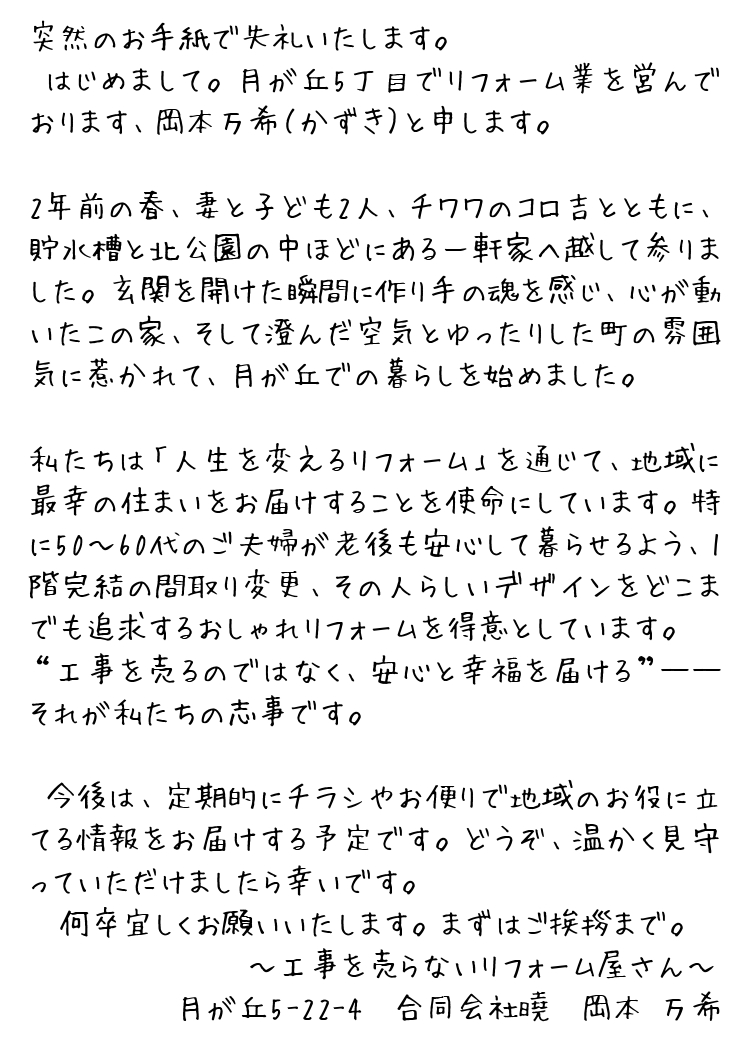 突然のお手紙で失礼いたします。
はじめまして。月が丘5丁目でリフォーム業を営んで
おります、岡本万希(かずき)と申します。
2年前の春、妻と子ども2人、チワワのコロ吉とともに、
貯水槽と北公園の中ほどにある一軒家へ越して参りま
した。玄関を開けた瞬間に作り手の魂を感じ、心が動
いたこの家、そして澄んだ空気とゆったりした町の雰囲
気に惹かれて、月が丘での暮らしを始めました。
私たちは「人生を変えるリフォーム」を通じて、地域に
最幸の住まいをお届けすることを使命にしています。特
に50～60代のご夫婦が老後も安心して暮らせるよう、1
階完結の間取り変更、その人らしいデザインをどこま
でも追求するおしゃれリフォームを得意としています。
“工事を売るのではなく、安心と幸福を届ける”——
それが私たちの志事です。
今後は、定期的にチラシやお便りで地域のお役に立
てる情報をお届けする予定です。どうぞ、温かく見守
っていただけましたら幸いです。
何卒宜しくお願いいたします。まずはご挨拶まで。
～工事を売らないリフォーム屋さん～
月が丘5-22-4　合同会社暁　岡本 万希